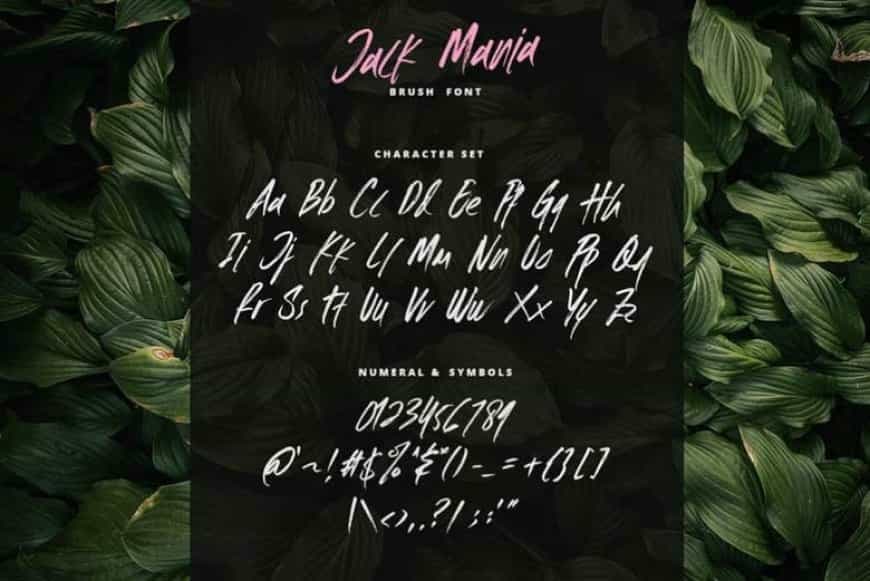 Jack Mania
BRUSH FONT
CHARACTER SET
Aa Bb Cc Dd Ee Ff Gg Hh
Ii Jj Kk Ll Mm Nn Oo Pp Qq
Rr Ss Tt Uu Vv Ww Xx Yy Zz
NUMERAL & SYMBOLS
0123456789
@'~!#$%^&*()-_=+{}[]
|\<>,.?/;:'"